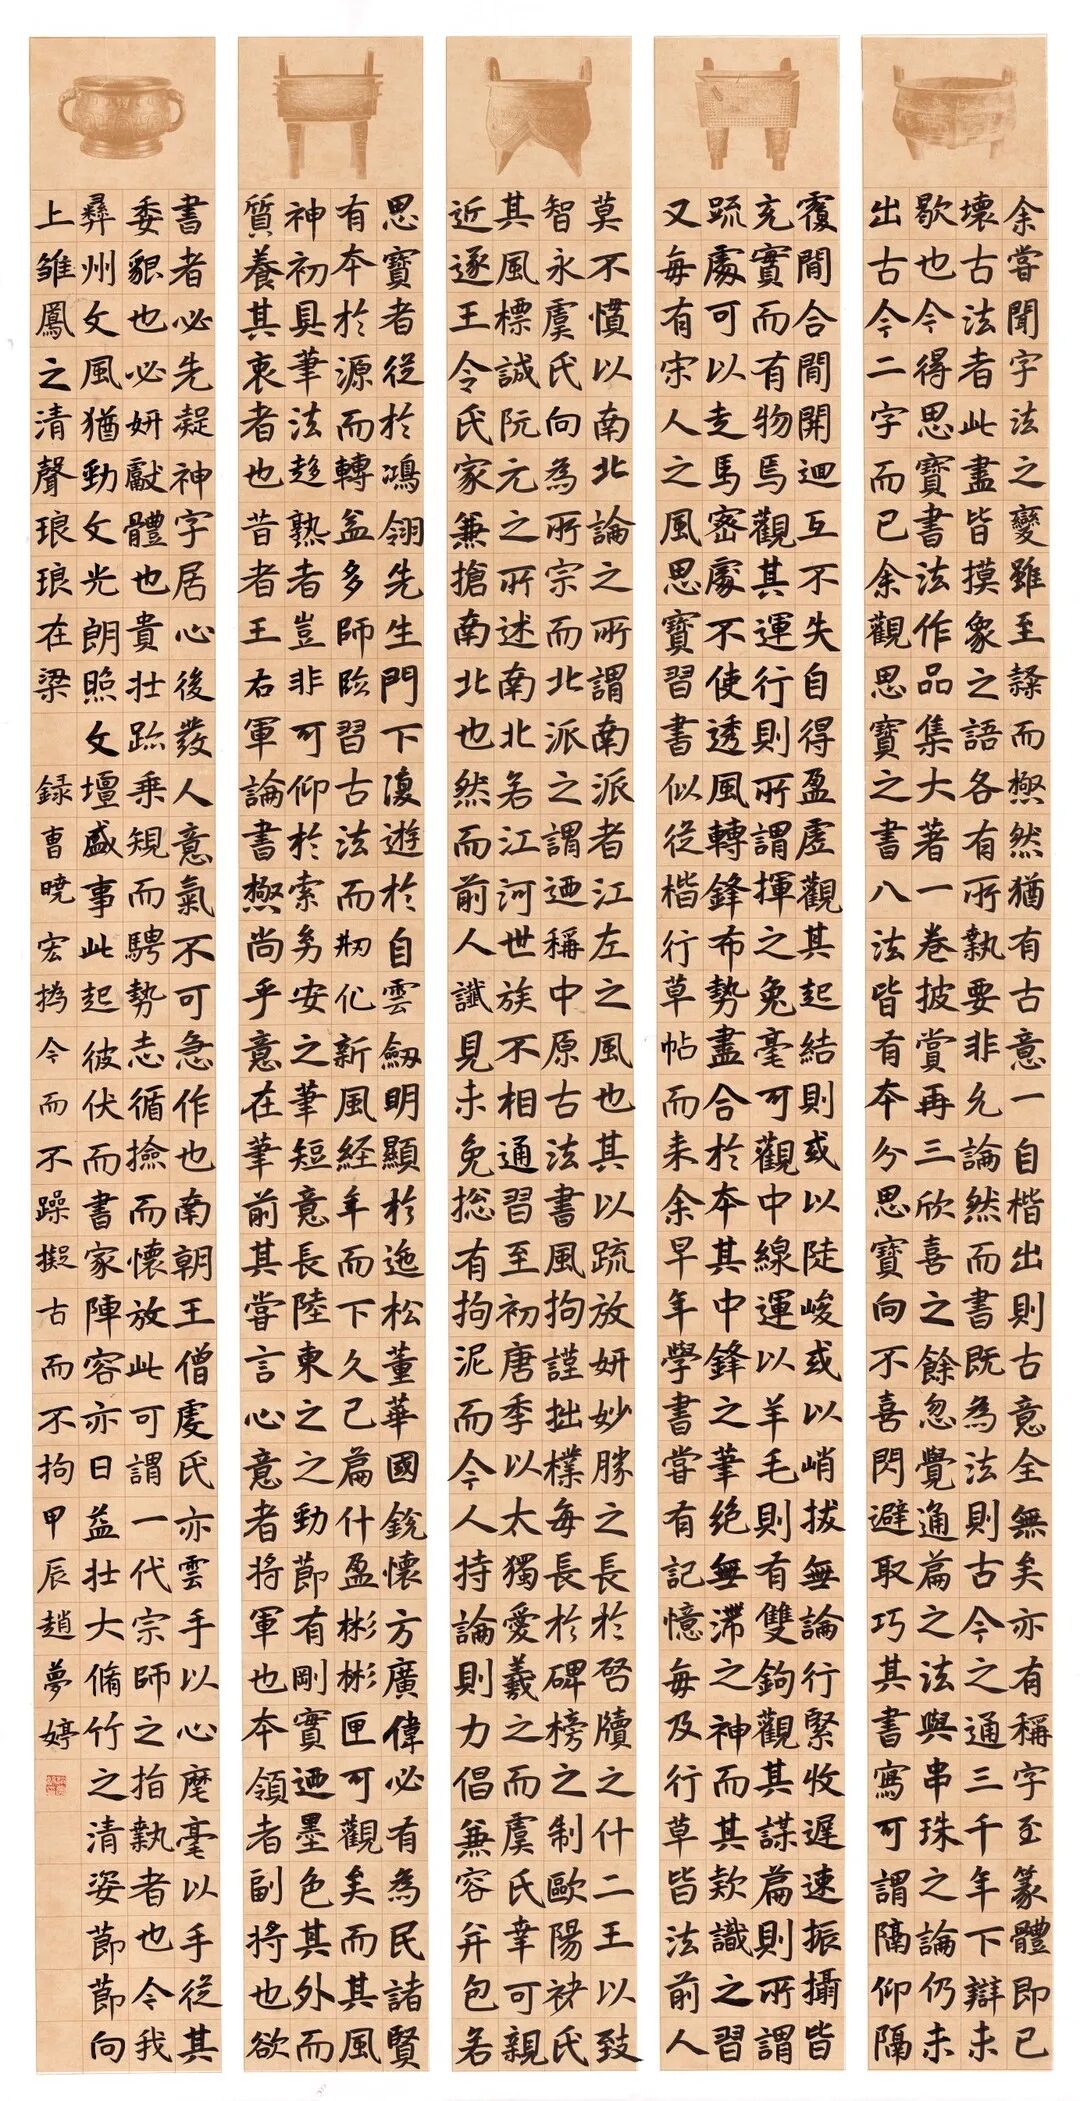 余嘗聞字法之變雖至隸而檃然猶有古意一自楷出則古意全無矣亦有稱字至篆體即已
壞古法者此盡皆摸象之語各有所執要非允論然而書既為法則古今之通三千年下辯未
歇也今得思寶書法作品集大著一卷披賞再三欣喜之餘忽覺通篇之法與串珠之論仍未
出古今二字而已余觀思寶之書八法皆有本分思寶向不喜閃避取巧其書寫可謂隔仰隔
覆間合間開迴互不失自得盈虛觀其起結則或以陡峻或以峭拔無論行緊收遲速振攝皆
充實而有物焉觀其運行則所謂揮之兔毫可觀中線運以羊毛則有雙鉤觀其謀篇則所謂
疏處可以走馬密處不使透風轉鋒布勢盡合於本其中鋒之筆絕無滯之神而其款識之習
又每有宋人之風思寶習書似從楷行草帖而来余早年學書嘗有記憶每及行草皆法前人
莫不慣以南北論之所謂南派者江左之風也其以疏放妍妙勝之長於啓牘之什二王以致
智永虞氏向為所宗而北派之謂迺稱中原古法書風拘謹拙樸每長於碑榜之制歐陽褚氏
其風標誠阮元之所述南北若江河世族不相通習至初唐季以太獨愛羲之而虞氏幸可親
近逐王令氏家兼搶南北也然而前人讖見未免総有拘泥而今人持論則力倡兼容并包若
思寶者從於鴻翎先生門下復遊於自雲劒明顯於迤松董華國銳懷方廣偉必有為民諸賢
有本於源而轉益多師臨習古法而刱化新風経年而下久已篇什盈彬彬匣可觀矣而其風
神初具筆法趍熟者豈非可仰於索勞安之筆短意長陸東之之勁節有剛實迺墨色其外而
質養其衷者也昔者王右軍論書檃尚乎意在筆前其嘗言心意者將軍也本領者副将也欲
書者必先凝神字居心後發人意氣不可急作也南朝王僧虔氏亦雲手以心麾毫以手從其
委貌也必妍獻體也貴壯跡乘規而騁勢志循撿而懷放此可謂一代宗師之指執者也令我
彝州文風猶勁文光朗照文壇盛事此起彼伏而書家陣容亦日益壯大脩竹之清姿節節向
上雛鳳之清聲琅琅在梁
録曹曉宏撝今而不躁擬古而不拘甲辰趙夢婷